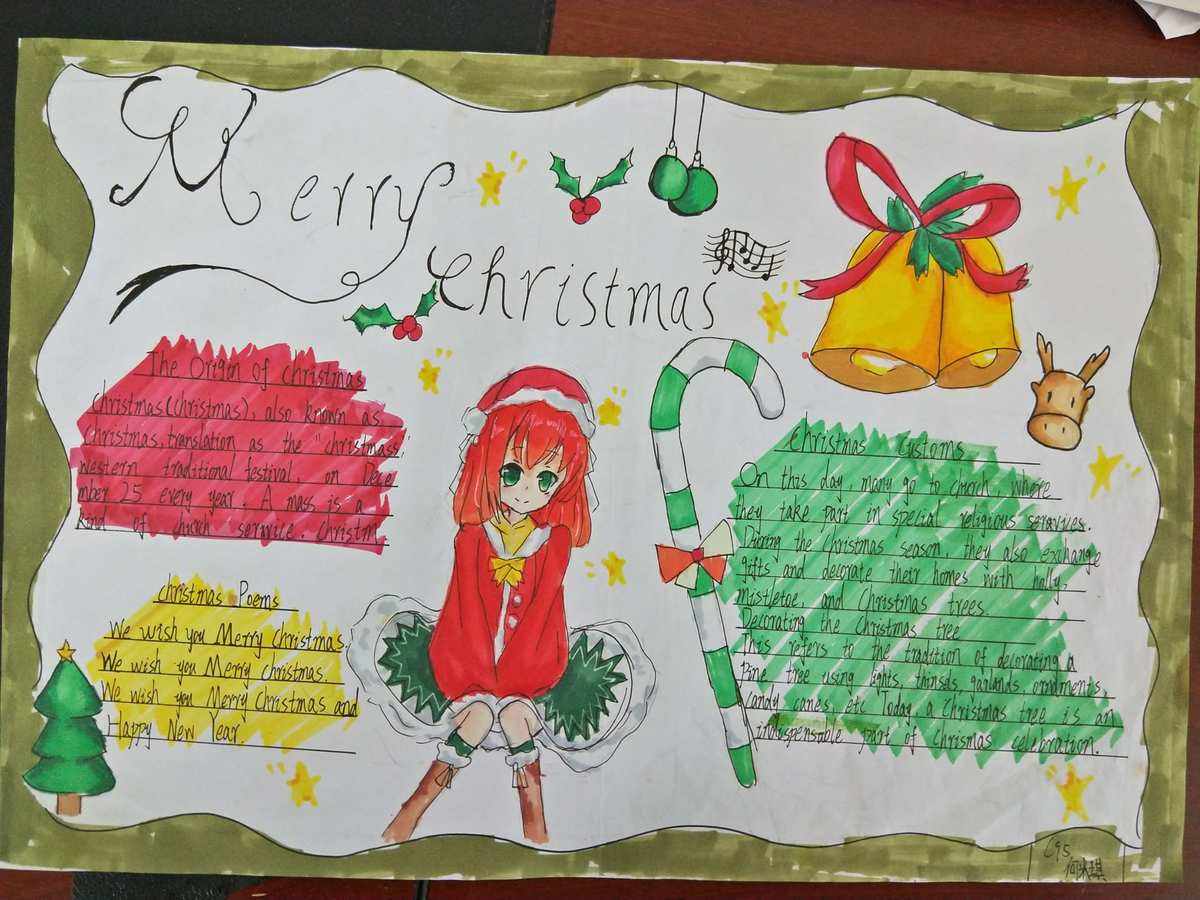 Merry
Christmas
The Origin of christmas
christmas(christmas), also known as
Christmas, translation as the "christmass,"
western traditional festival, on Dece
mber 25 every year. A mass is a
kind of church serwice. Christm
christmas Poems
We wish you Merry Christmas.
We wish you Merry christmas.
We wish you Merry Christmas and
Happy New Year.
Christmas Customs
On this day, many go to church, where
they take part in special religious serqvies.
During the Christmas season, they also exchange
gifts and decorate their homes with holly,
mistletoe, and Christmas trees
Decorating the Christmas tree
This refers to the tradition of decorating a
Pine tree using lights, garlands, ornaments,
candy canes, etc Today, a Christmas tree is an
indyspensible part of Chrismas celebration.
C95